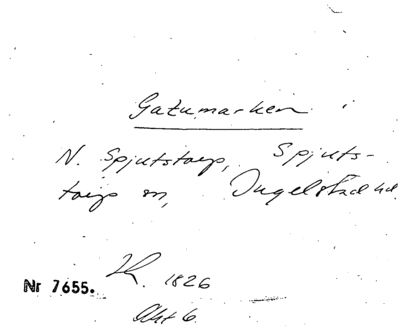 Gatumarken
N. Spjutstorp, Spjuts-
torp sn, Ingelstad hd.
1826
Nr 7655.
Akt 6